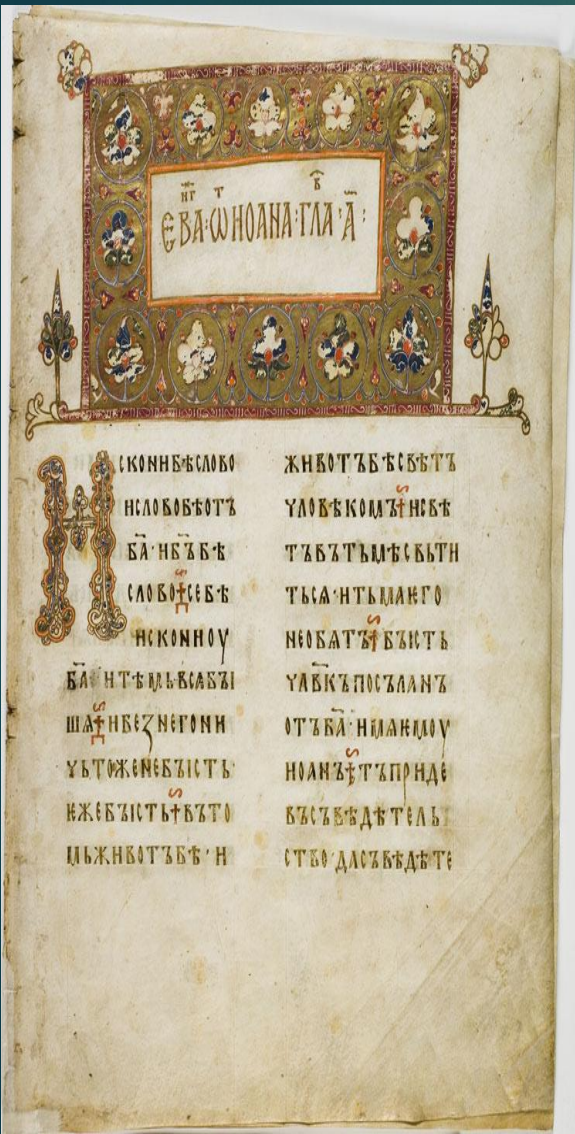 ЄВАⷩ҇ⷢ҇·Ѡⷮ ИОАНА·ГЛАⷡ҇·А҃:
ИСКОНИБѢСЛОВО
ИСЛОВОБѢОТЪ
Б҃А·ИБ҃ЪБѢ
СЛОВО СЕБѢ
ИСКОНИОУ
Б҃А·ИТѢМЬВСѦБꙐ
ШѦ ИБЕꙀНЕГОНИ
ЧЬТОЖЕНЕБꙐСТЬ·
ѤЖЕБꙐСТЬ ВЪТО
МЬЖИВОТЪБѢ·И
ЖИВОТЪБѢСВѢТЪ
ЧЛОВѢКОМЪ ИСВѢ
ТЪВЪТЬМѢСВЬТИ
ТЬСѦ·ИТЬМАѤГО
НЕОБѦТЪ БꙐСТЬ
ЧЛ҃ВКЪПОСЪЛАНЪ
ОТЪБ҃А·ИМѦѤМОУ
ИОАНЪ ТЪПРИДЕ
ВЪСЪВѢДѢТЕЛЬ
СТВО·ДАСЪВѢДѢТЕ